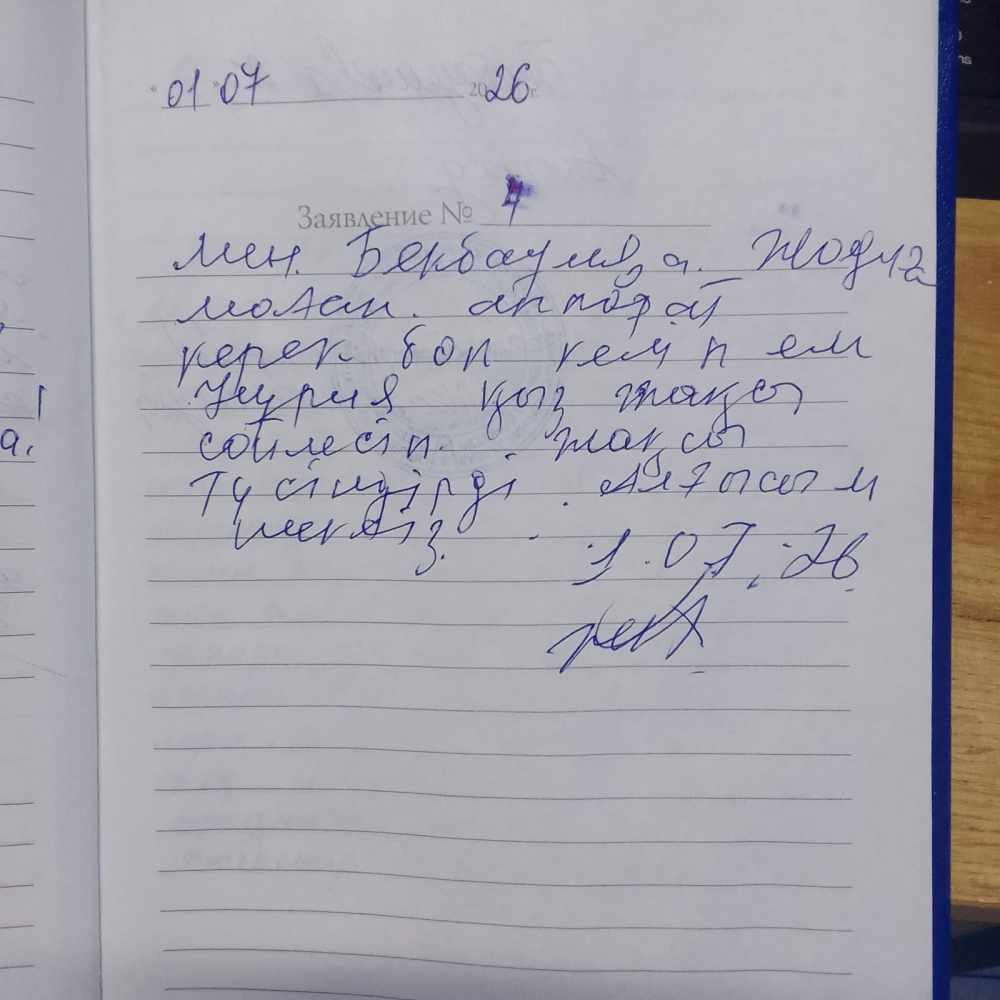 "01" 07 2026 г.
Заявление № 7
Мен. Бекбаулиза. Жодига
молан. аппарат
керек боп келіп ем
Нурия қыз жақсы
сөйлесіп. жақсы
Түсіндірді. Алғысым
шексіз.
1.07.26